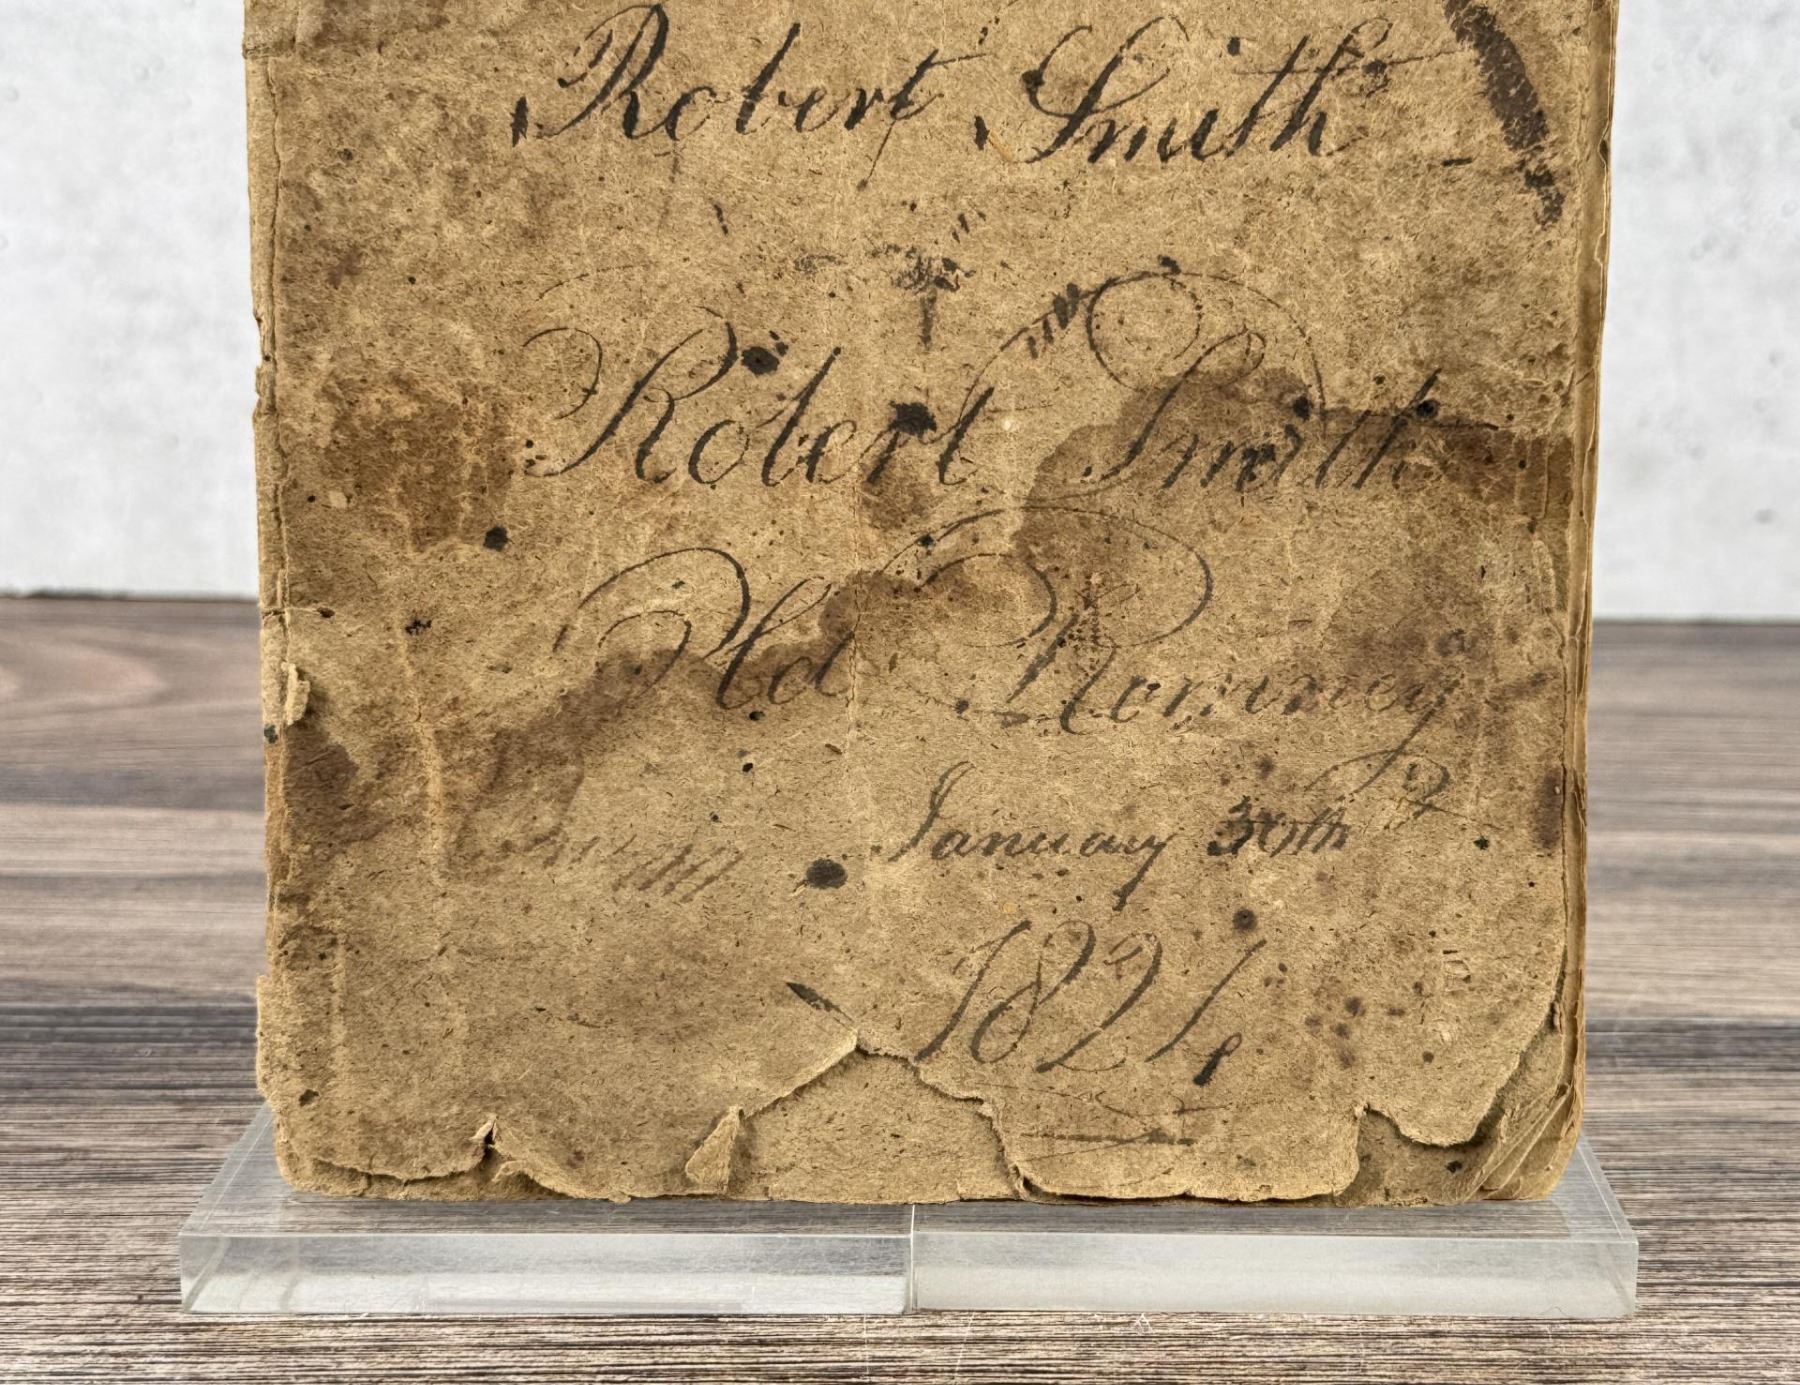 Robert Smith
Robert Smith
Old Romney
January 30th
1821